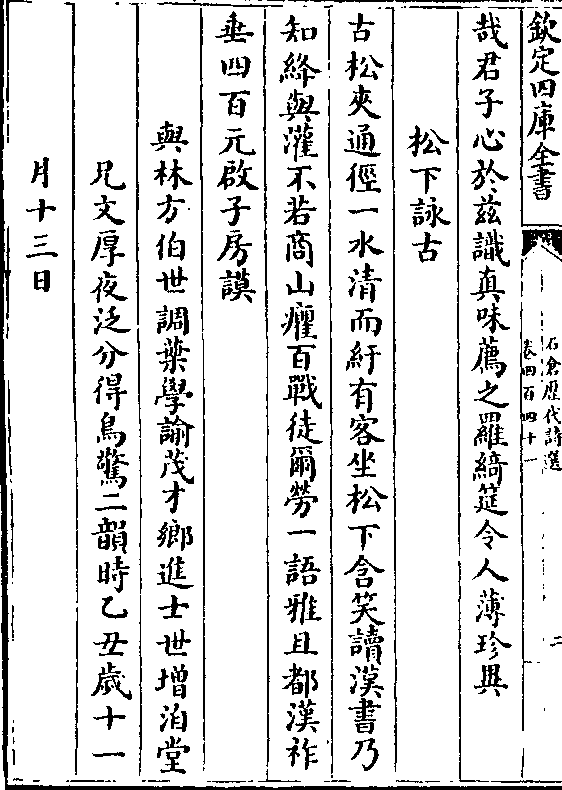 欽定四庫全書
石倉歷代詩選
卷四百四十一
二
哉君子心於兹識真味薦之羅綺筵令人薄珍異
松下詠古
古松夾通徑一水清而紆有客坐松下含笑讀漢書乃
知絳與灌不若商山癯百戰徒爾勞一語雅且都漢祚
垂四百元啟子房謨
與林方伯世調葉學諭茂才鄉進士世增洎堂
兄文厚夜泛分得鳥驚二韻時乙丑歲十一
月十三日